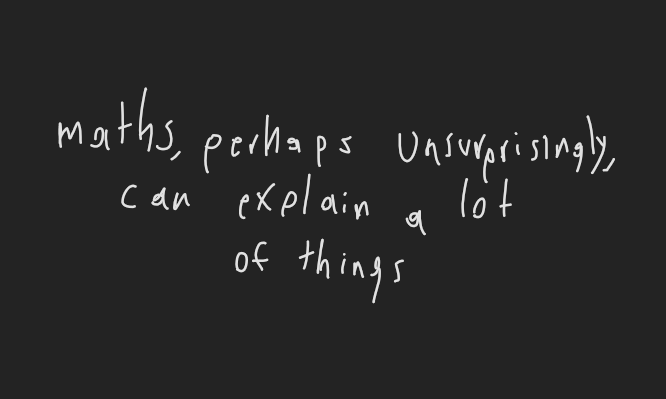 maths, perhaps unsurprisingly,
can explain a lot
of things